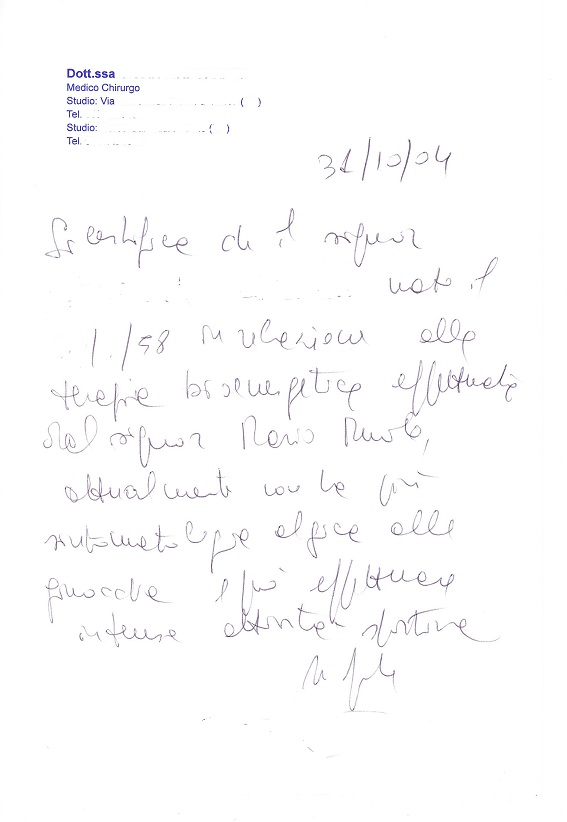 Dott.ssa
Medico Chirurgo
Studio: Via ( )
Tel.
Studio: ( )
Tel.
31/10/04
Si certifica che il signor
nato il
/ /58 in relazione alla
terapia bioenergetica effettuata
dal signor Mario
attualmente non ha più
sintomatologia algica alle
ginocchia e può effettuare
intensa attività sportiva
In fede